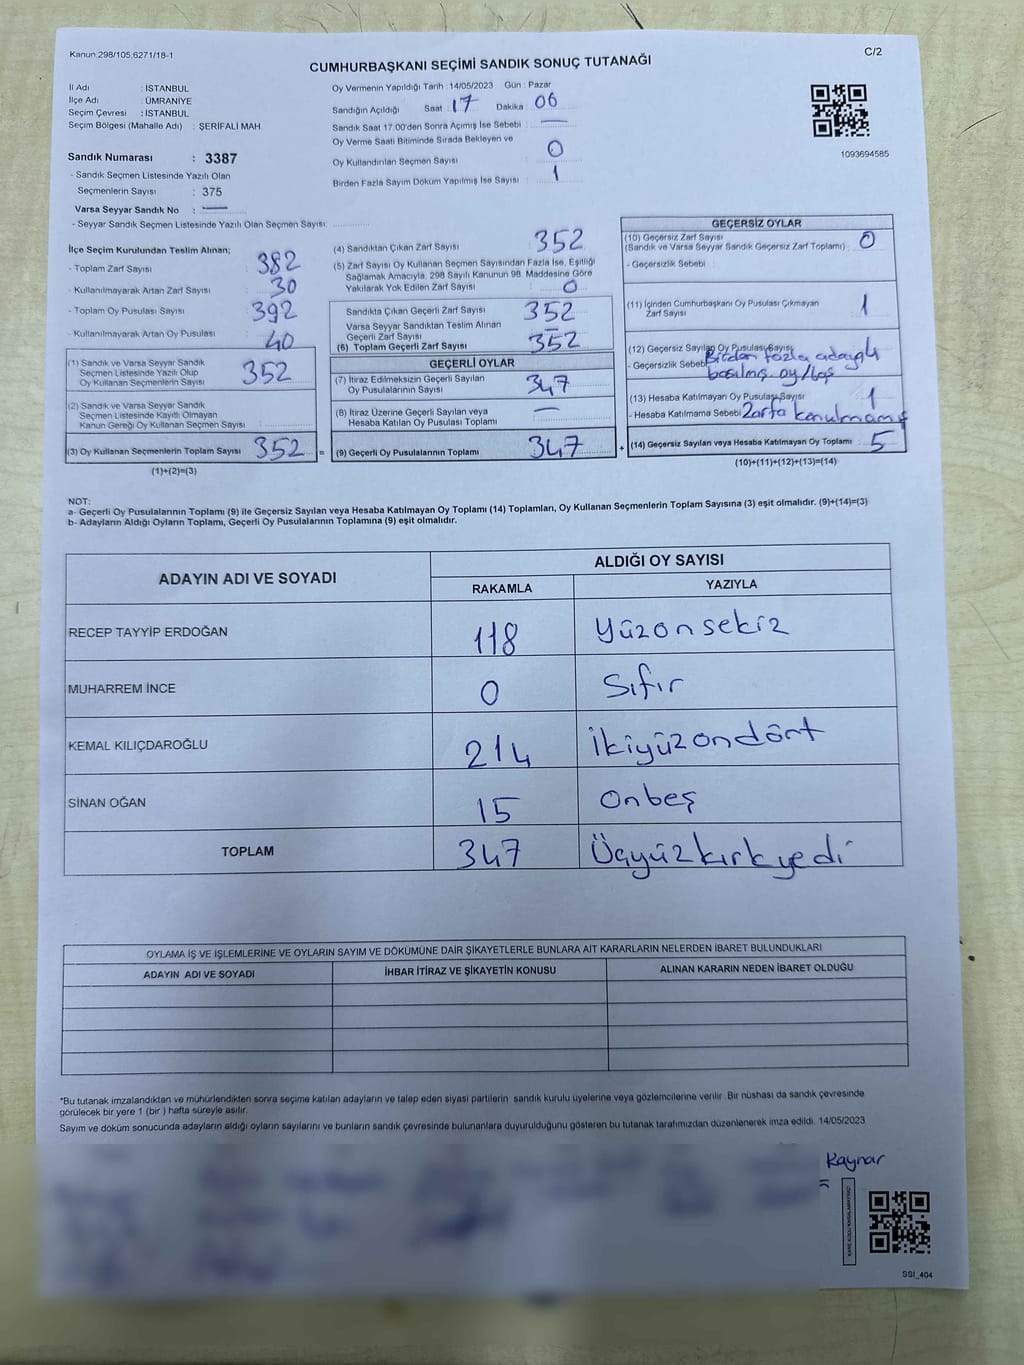 Kanun:298/105,6271/18-1
C/2
CUMHURBAŞKANI SEÇİMİ SANDIK SONUÇ TUTANAĞI
İl Adı : İSTANBUL
İlçe Adı : ÜMRANİYE
Seçim Çevresi : İSTANBUL
Seçim Bölgesi (Mahalle Adı) : ŞERİFALİ MAH.
Sandık Numarası : 3387
- Sandık Seçmen Listesinde Yazılı Olan
Seçmenlerin Sayısı : 375
Varsa Seyyar Sandık No : —
- Seyyar Sandık Seçmen Listesinde Yazılı Olan Seçmen Sayısı :
Oy Vermenin Yapıldığı Tarih : 14/05/2023 Gün : Pazar
Sandığın Açıldığı Saat : 17 Dakika : 06
Sandık Saat 17:00'den Sonra Açımış İse Sebebi : —
Oy Verme Saati Bitiminde Sırada Bekleyen ve
Oy Kullandırılan Seçmen Sayısı : 0
Birden Fazla Sayım Döküm Yapılmış İse Sayısı : 1
1093694585
İlçe Seçim Kurulundan Teslim Alınan;
- Toplam Zarf Sayısı : 382
- Kullanılmayarak Artan Zarf Sayısı : 30
- Toplam Oy Pusulası Sayısı : 392
- Kullanılmayarak Artan Oy Pusulası : 40
(1) Sandık ve Varsa Seyyar Sandık
Seçmen Listesinde Yazılı Olup
Oy Kullanan Seçmenlerin Sayısı : 352
(2) Sandık ve Varsa Seyyar Sandık
Seçmen Listesinde Kayıtlı Olmayan
Kanun Gereği Oy Kullanan Seçmen Sayısı :
(3) Oy Kullanan Seçmenlerin Toplam Sayısı : 352 =
(1)+(2)=(3)
(4) Sandıktan Çıkan Zarf Sayısı : 352
(5) Zarf Sayısı Oy Kullanan Seçmen Sayısından Fazla İse, Eşitliği
Sağlamak Amacıyla, 298 Sayılı Kanunun 98. Maddesine Göre
Yakılarak Yok Edilen Zarf Sayısı : 0
Sandıkta Çıkan Geçerli Zarf Sayısı : 352
Varsa Seyyar Sandıktan Teslim Alınan
Geçerli Zarf Sayısı : —
(6) Toplam Geçerli Zarf Sayısı : 352
GEÇERLİ OYLAR
(7) İtiraz Edilmeksizin Geçerli Sayılan
Oy Pusulalarının Sayısı : 347
(8) İtiraz Üzerine Geçerli Sayılan veya
Hesaba Katılan Oy Pusulaları Toplamı : —
(9) Geçerli Oy Pusulalarının Toplamı : 347 +
GEÇERSİZ OYLAR
(10) Geçersiz Zarf Sayısı
(Sandık ve Varsa Seyyar Sandık Geçersiz Zarf Toplamı) : 0
- Geçersizlik Sebebi :
(11) İçinden Cumhurbaşkanı Oy Pusulası Çıkmayan
Zarf Sayısı : 1
(12) Geçersiz Sayılan Oy Pusulası Sayısı
- Geçersizlik Sebebi Birden fazla adaylı
basılmış oy/boş
(13) Hesaba Katılmayan Oy Pusulası Sayısı : 1
- Hesaba Katılmama Sebebi Zarfa konulmamış
(14) Geçersiz Sayılan veya Hesaba Katılmayan Oy Toplamı : 5
(10)+(11)+(12)+(13)=(14)
NOT:
a- Geçerli Oy Pusulalarının Toplamı (9) ile Geçersiz Sayılan veya Hesaba Katılmayan Oy Toplamı (14) Toplamları, Oy Kullanan Seçmenlerin Toplam Sayısına (3) eşit olmalıdır. (9)+(14)=(3)
b- Adayların Aldığı Oyların Toplamı, Geçerli Oy Pusulalarının Toplamına (9) eşit olmalıdır.
ADAYIN ADI VE SOYADI
ALDIĞI OY SAYISI
RAKAMLA YAZIYLA
RECEP TAYYİP ERDOĞAN 118 Yüzonsekiz
MUHARREM İNCE 0 Sıfır
KEMAL KILIÇDAROĞLU 214 İkiyüzondört
SİNAN OĞAN 15 Onbeş
TOPLAM 347 Üçyüzkırkyedi
OYLAMA İŞ VE İŞLEMLERİNE VE OYLARIN SAYIM VE DÖKÜMÜNE DAİR ŞİKAYETLERLE BUNLARA AİT KARARLARIN NELERDEN İBARET BULUNDUKLARI
ADAYIN ADI VE SOYADI İHBAR İTİRAZ VE ŞİKAYETİN KONUSU ALINAN KARARIN NEDEN İBARET OLDUĞU
*Bu tutanak imzalandıktan ve mühürlendikten sonra seçime katılan adayların ve talep eden siyasi partilerin sandık kurulu üyelerine veya gözlemcilerine verilir. Bir nüshası da sandık çevresinde
görülecek bir yere 1 (bir) hafta süreyle asılır.
Sayım ve döküm sonucunda adayların aldığı oyların sayılarını ve bunların sandık çevresinde bulunanlara duyurulduğunu gösteren bu tutanak tarafımızdan düzenlenerek imza edildi. 14/05/2023
Kaynar
SSI_404